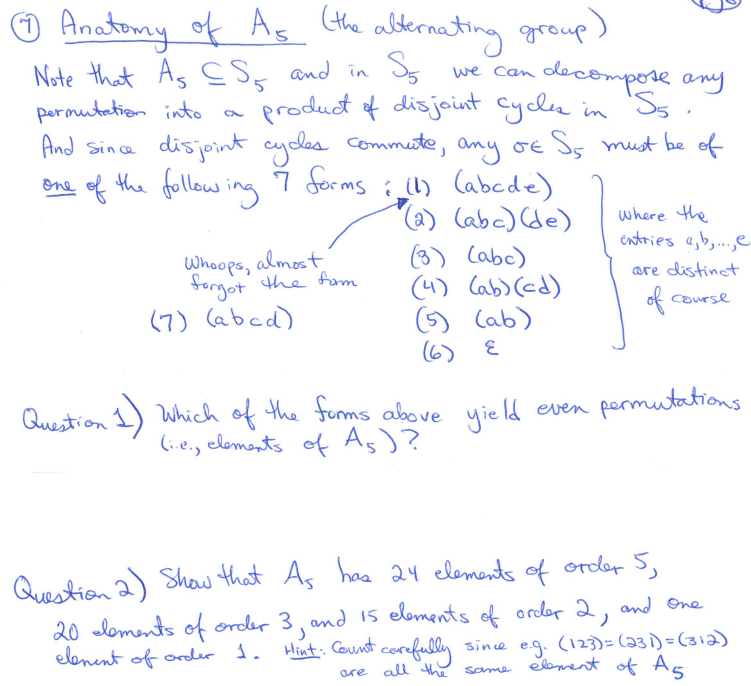 ⑦ Anatomy of A5 (the alternating group)
Note that A5 ⊆ S5 and in S5 we can decompose any
permutation into a product of disjoint cycles in S5.
And since disjoint cycles commute, any σ∈ S5 must be of
one of the following 7 forms : (1) (abcde)
(2) (abc)(de)
(3) (abc)
(4) (ab)(cd)
(5) (ab)
(6) ε
where the
entries a,b,...,e
are distinct
of course
Whoops, almost
forgot the form
(7) (abcd)
Question 1) Which of the forms above yield even permutations
(i.e., elements of A5)?
Question 2) Show that A5 has 24 elements of order 5,
20 elements of order 3, and 15 elements of order 2, and one
element of order 1. Hint: Count carefully since e.g. (123)=(231)=(312)
are all the same element of A5